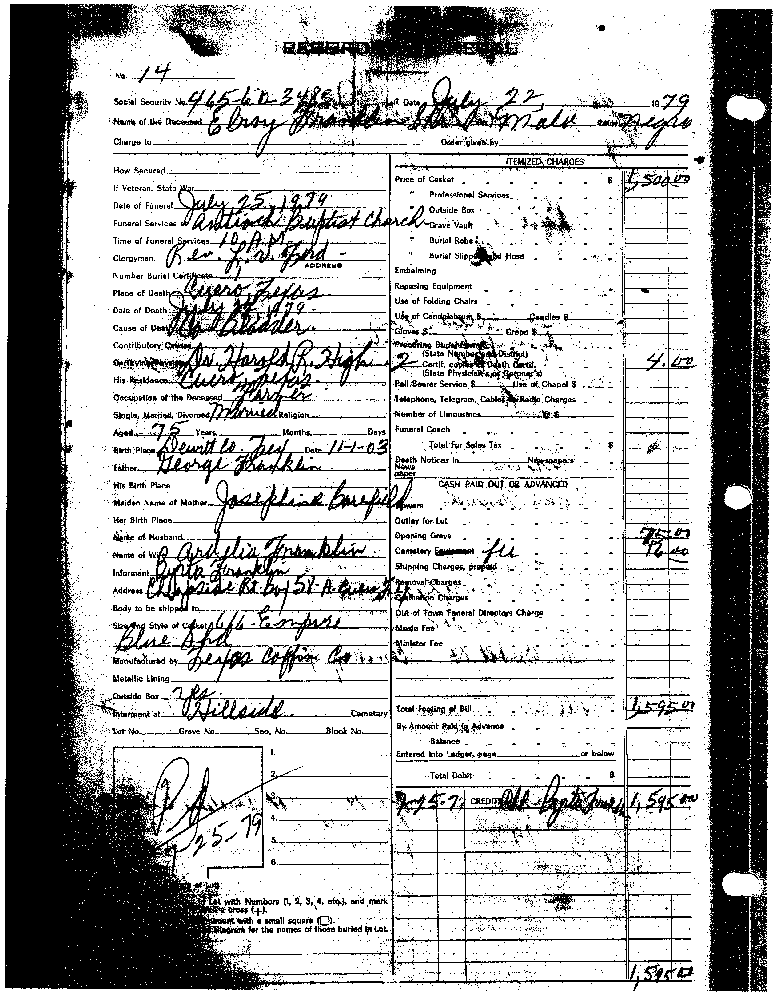 RECORD OF FUNERAL
No. 14
Social Security No. 465-60-3485 Date July 22, 1979
Name of the Deceased Elroy Franklin Male Negro
Charge to Order given by
How Secured
If Veteran, State War
Date of Funeral July 25, 1979
Funeral Services at Antioch Baptist Church
Time of Funeral Services 10 A.M.
Clergyman Rev. L. W. Ford
ADDRESS
Number Burial Certificate
Place of Death Cuero, Texas
Date of Death July 22, 1979
Cause of Death Bladder
Contributory Causes
Dr. Harold R. High
His Residence Cuero, Texas
Occupation of the Deceased Farmer
Single, Married, Divorced Married Religion
Aged 75 Years Months Days
Birth Place Dewitt Co. Tex Date 11-1-03
Father George Franklin
His Birth Place
Maiden Name of Mother Josephine Barefield
Her Birth Place
Name of Husband
Name of Wife Ardelia Franklin
Informant Franklin
Address Cheapside Rt. Box 58-A Cuero, Tx
Body to be shipped to
Size and Style of Casket 6/6 Empire
Blue
Manufactured by Texas Coffin Co
Metallic Lining
Outside Box yes
Interment at Hillside Cemetery
Lot No. Grave No. Sec. No. Block No.
1.
2.
3.
4.
5.
6.
Pd
7-25-79
Lot with Numbers (1, 2, 3, 4, etc.), and mark
cross (+).
with a small square (□).
Diagram for the names of those buried in Lot.
ITEMIZED CHARGES
Price of Casket $ 1,500.00
" Professional Services
" Outside Box
" Grave Vault
" Burial Robe
" Burial Slippers and Hose
Embalming
Reposing Equipment
Use of Folding Chairs
Use of Candelabrum $ Candles $
Gloves $ Crepe $
Procuring Burial Permit
(State Number and District)
2 Certif. copies of Death Certif. 4.00
(State Physician's or Coroner's)
Pall Bearer Service $ Use of Chapel $
Telephone, Telegram, Cables & Radio Charges
Number of Limousines @ $
Funeral Coach
Total for Sales Tax $
Death Notices in Newspapers
CASH PAID OUT OR ADVANCED
Flowers
Outlay for Lot
Opening Grave 75.00
Cemetery Equipment fee 16.00
Shipping Charges, prepaid
Removal Charges
Cremation Charges
Out of Town Funeral Directors Charge
Music Fee
Minister Fee
Total Footing of Bill 1,595.00
By Amount Paid in Advance
Balance
Entered into Ledger, page or below
Total Debit $
7-25-7 CREDIT 1,595.00
1,595.00